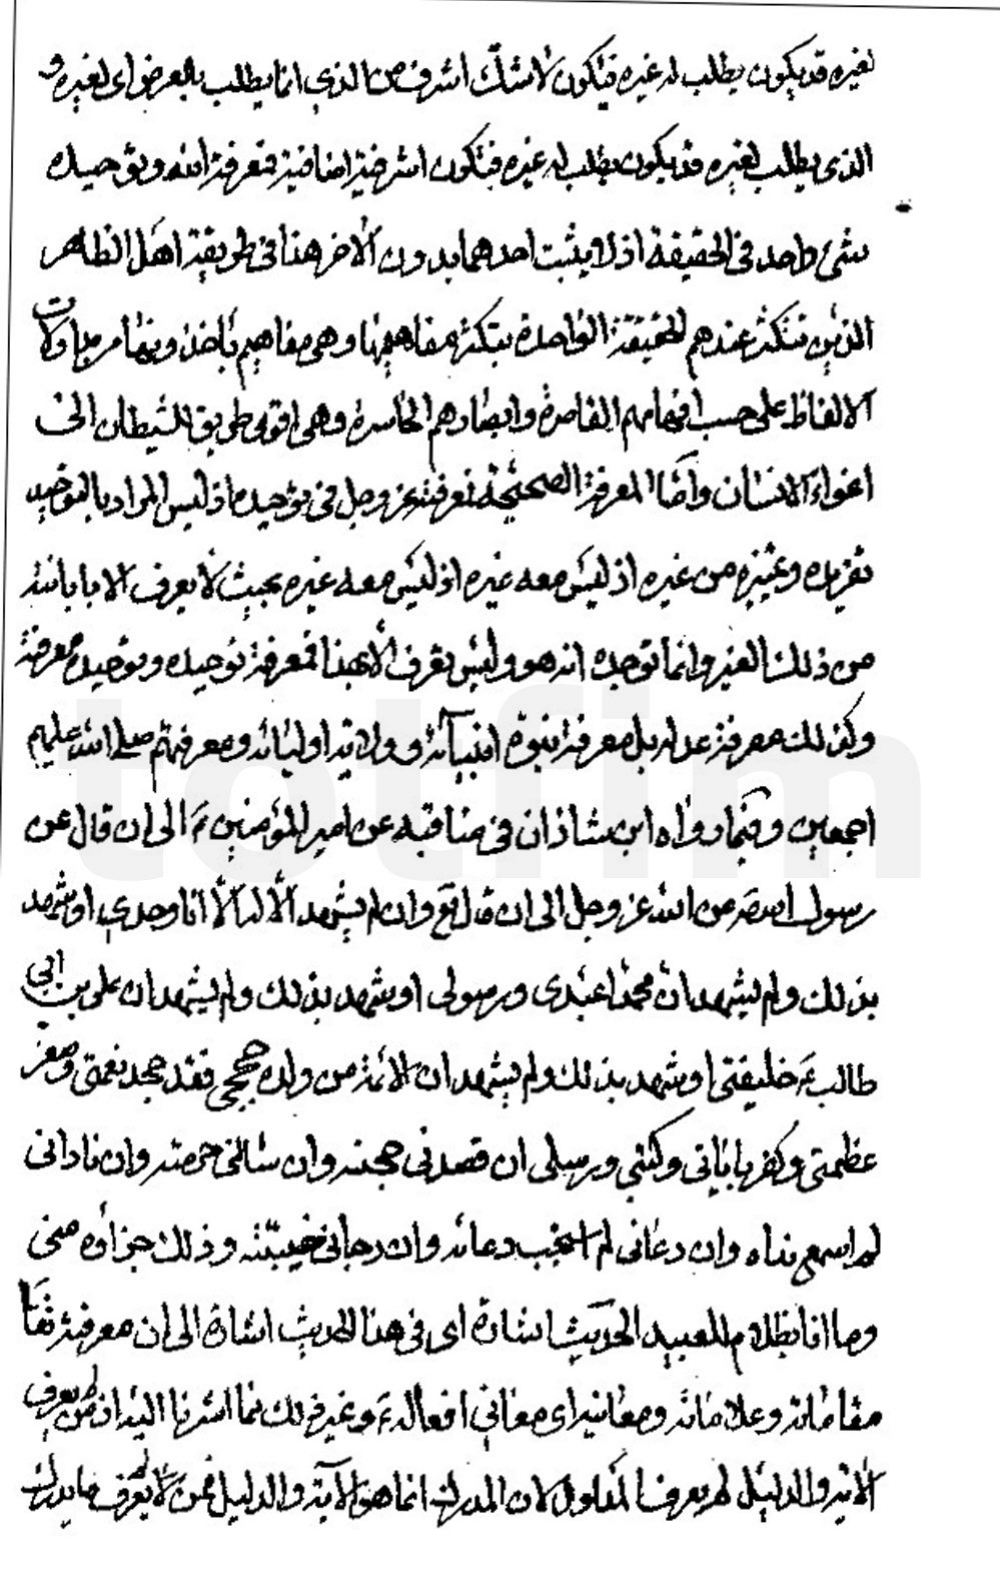 لغيره قد يكون يطلب له غيره فيكون لا شك اشرف من الذي انما يطلب بالعرض اى لغيره و
الذى يطلب لغيره قد يكون يطلب له غيره فيكون اشرفية اضافية فمعرفة الله وتوحيده
شئ واحد فى الحقيقة اذ لا يثبت احدهما بدون الآخر هنا فى طريقة اهل الظاهر
الذين تتكثر عندهم الحقيقة الواحدة بتكثر مفاهيمها وهى مفاهيم يأخذونها من مدلولات
الالفاظ على حسب افهامهم القاصرة وابصارهم الخاسرة وهى اقوى طريق للشيطان الى
اغواء الانسان وامّا المعرفة الصحيحة فمعرفته عز وجل فى توحيده اذ ليس المراد بالتوحيد
تفريده وتميزه من غيره اذ ليس معه غيره اذ ليس معه غيره بحيث لا يعرف الا بابانته
من ذلك الغير وانما توحده انه هو وليس يعرف الا بهذا فمعرفة توحيده وتوحيده معرفة
وكذلك معرفة عدله بل معرفة نبوة انبيآئه وولاية اوليائه ومعرفتهم صلى الله عليهم
اجمعين وفيما رواه ابن شاذان فى مناقبه عن امير المؤمنين ع الى ان قال عن
رسول الله ص عن الله عز وجل الى ان قال تع وان لم يشهد ألّا اله الّا انا وحدي او شهد
بذلك ولم يشهد انّ محمدا عبدى ورسولى او شهد بذلك ولم يشهد ان على بن ابي
طالب ع خليفتى او شهد بذلك ولم يشهد ان الائمة من ولده حججي فقد جحد نعمتى وصغر
عظمتى وكفر باياتى وكتبي ورسلى ان قصدنى حجبته وان سألنى حرمته وان نادانى
لم اسمع نداه وان دعانى لم استجب دعائه وان رجانى خيبته وذلك جزاؤه منى
وما انا بظلام للعبيد الحديث اشارة اى فى هذا الحديث اشارة الى ان معرفة
مقاماته وعلاماته ومعانيه اى معاني افعاله ع وغير ذلك مما اشرنا اليه اذ من لم يعرف
الآية والدليل لم يعرف المدلول لان المدرك انما هو الآية والدليل فمن لا يعرف ما يدرك